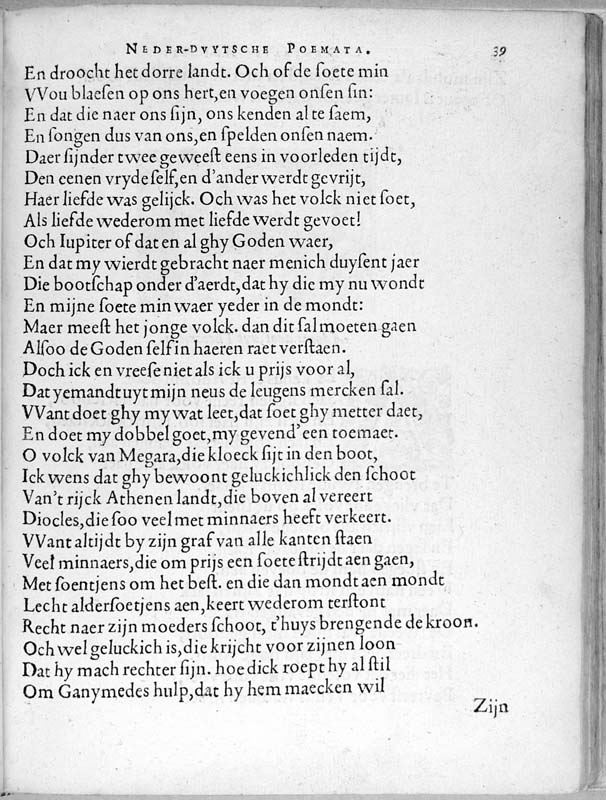 NEDER-DVYTSCHE POEMATA. 39
En droocht het dorre landt. Och of de ſoete min
VVou blaeſen op ons hert, en voegen onſen ſin:
En dat die naer ons ſijn, ons kenden al te ſaem,
En ſongen dus van ons, en ſpelden onſen naem.
Daer ſijnder twee geweeſt eens in voorleden tijdt,
Den eenen vryde ſelf, en d'ander werdt gevrijt,
Haer liefde was gelijck. Och was het volck niet ſoet,
Als liefde wederom met liefde werdt gevoet!
Och Iupiter of dat en al ghy Goden waer,
En dat my wierdt gebracht naer menich duyſent jaer
Die bootſchap onder d'aerdt, dat hy die my nu wondt
En mijne ſoete min waer yeder in de mondt:
Maer meeſt het jonge volck. dan dit ſal moeten gaen
Alſoo de Goden ſelf in haeren raet verſtaen.
Doch ick en vreeſe niet als ick u prijs voor al,
Dat yemandt uyt mijn neus de leugens mercken ſal.
VVant doet ghy my wat leet, dat ſoet ghy metter daet,
En doet my dobbel goet, my gevend' een toemaet.
O volck van Megara, die kloeck ſijt in den boot,
Ick wens dat ghy bewoont geluckichlick den ſchoot
Van't rijck Athenen landt, die boven al vereert
Diocles, die ſoo veel met minnaers heeft verkeert.
VVant altijdt by zijn graf van alle kanten ſtaen
Veel minnaers, die om prijs een ſoete ſtrijdt aen gaen,
Met ſoentjens om het beſt. en die dan mondt aen mondt
Lecht alderſoetjens aen, keert wederom terſtont
Recht naer zijn moeders ſchoot, t'huys brengende de kroon.
Och wel geluckich is, die krijcht voor zijnen loon
Dat hy mach rechter ſijn. hoe dick roept hy al ſtil
Om Ganymedes hulp, dat hy hem maecken wil
Zijn